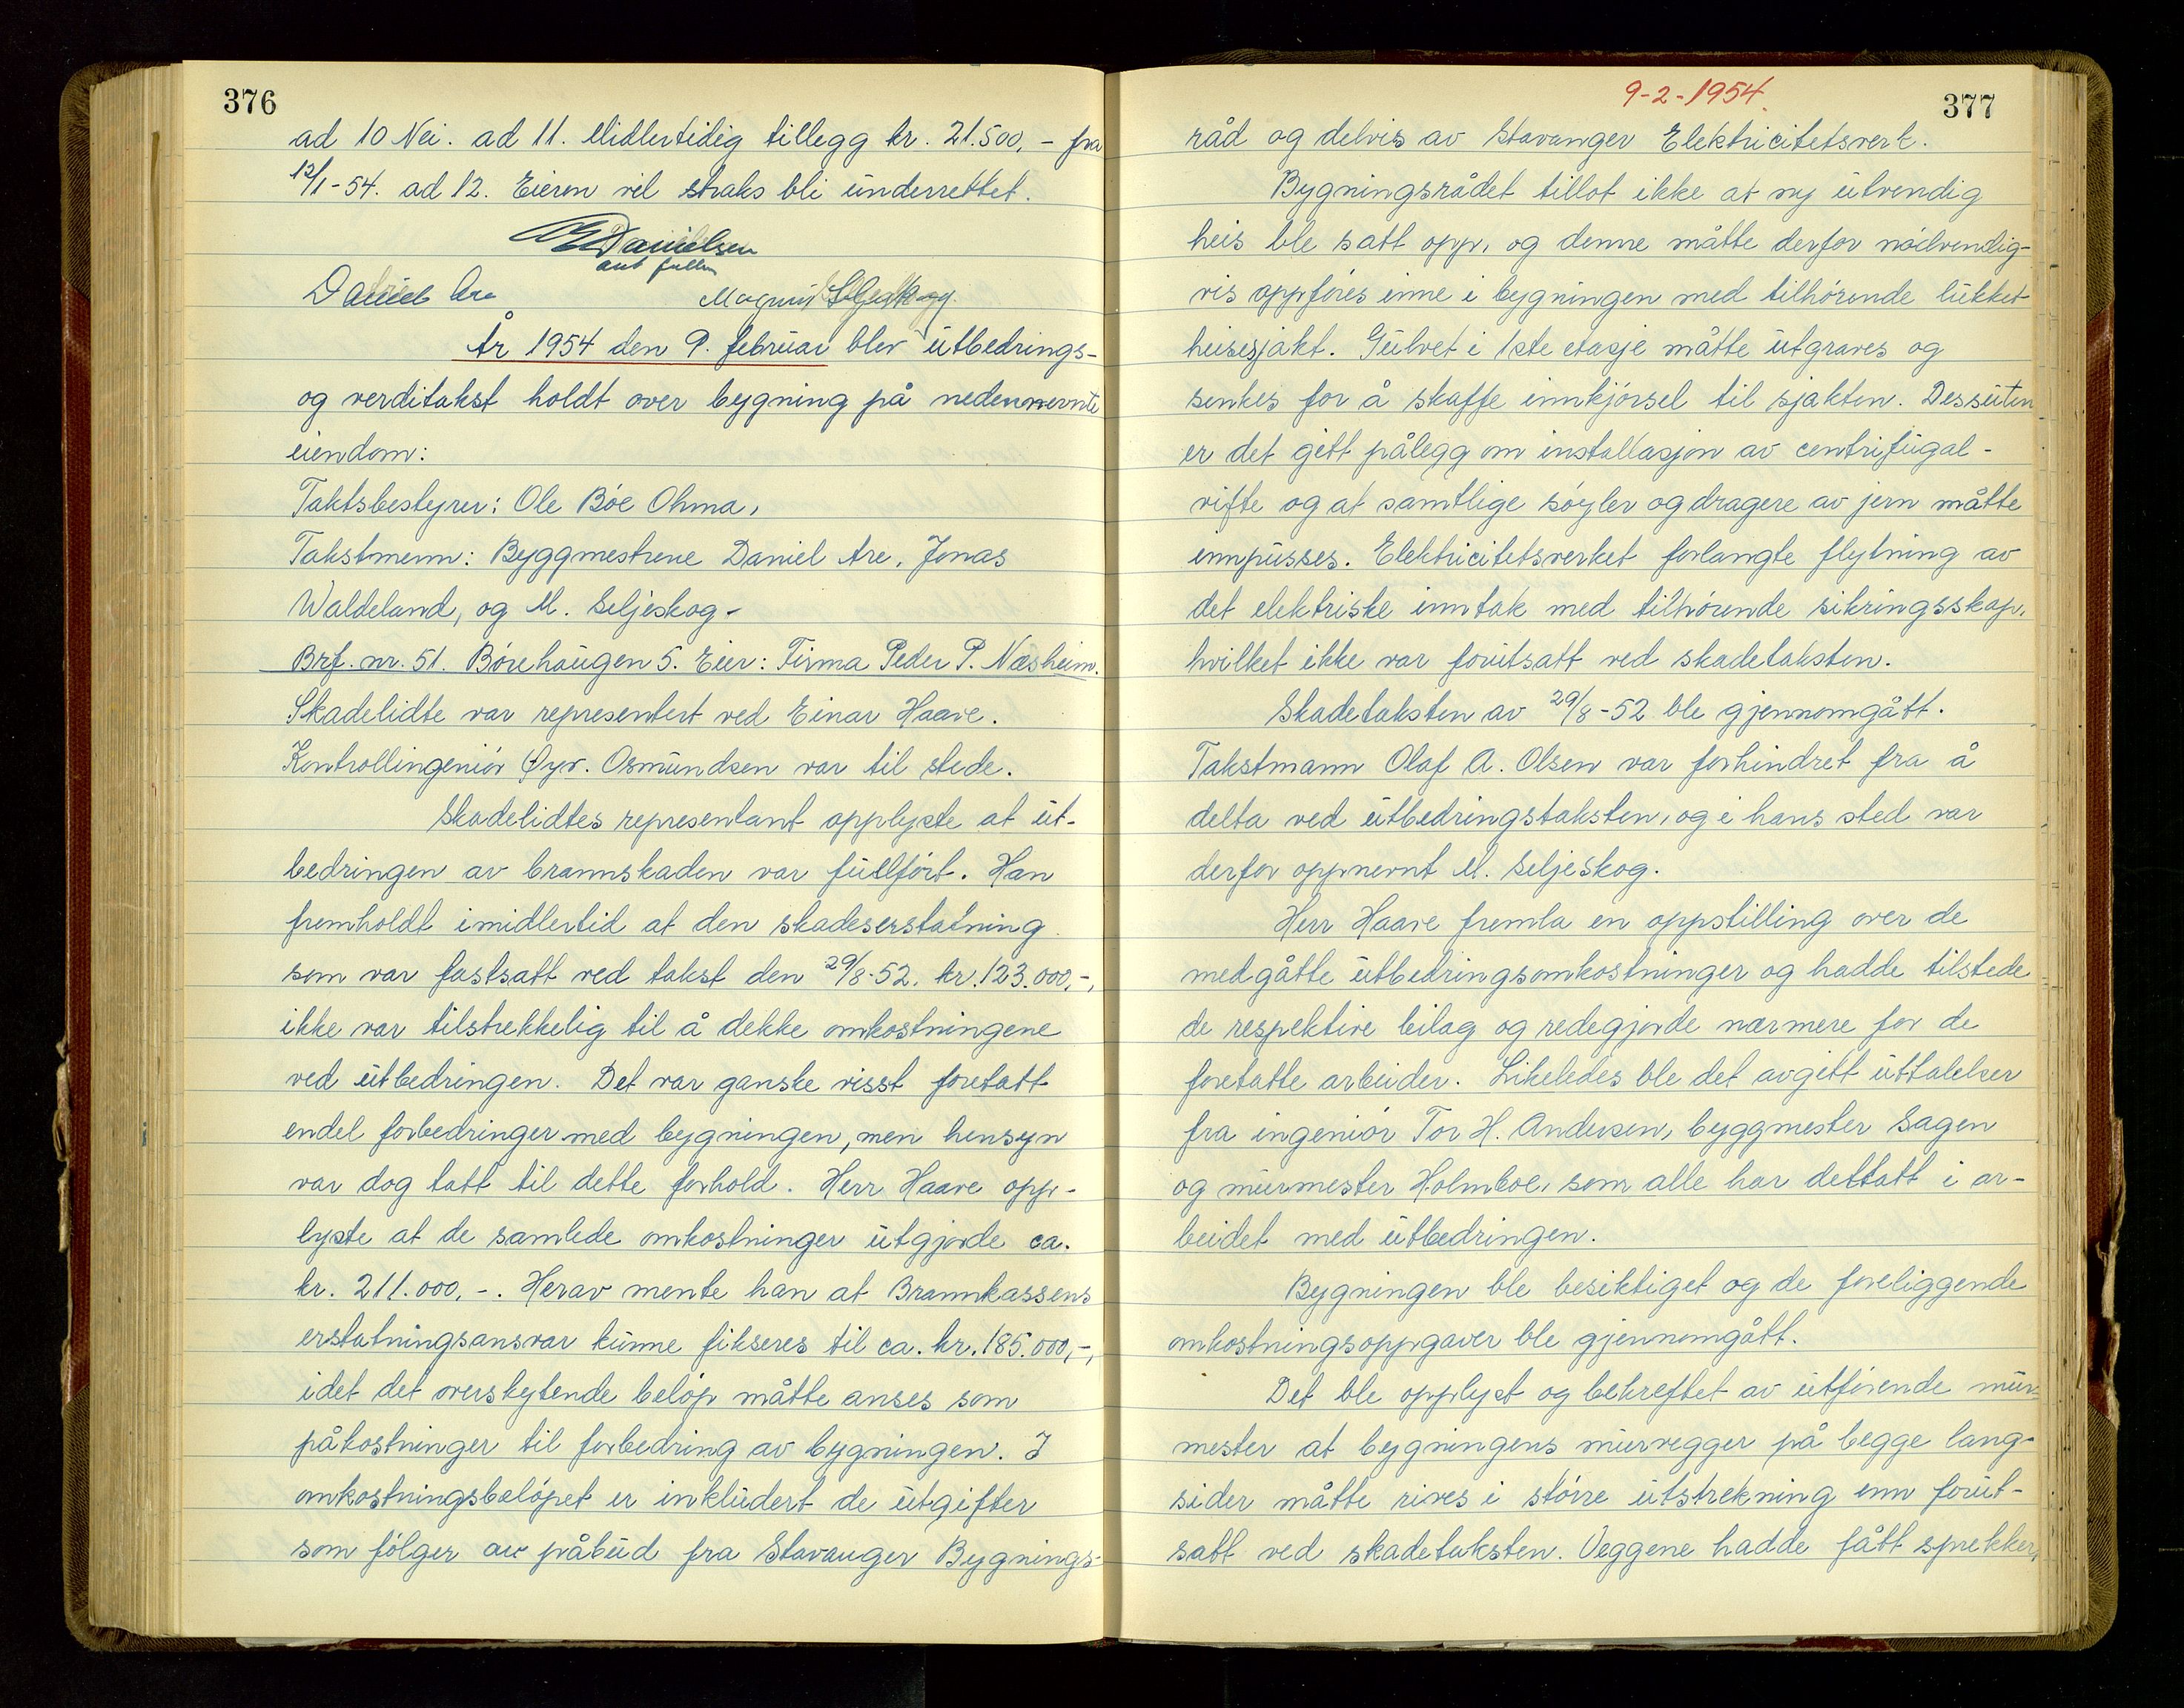 376
ad 10 Nei. ad 11. Midlertidig tillegg kr. 21.500,- fra
12/1-54. ad 12. Eieren vil straks bli underrettet.
Danielsen
Daniel Are Magnus Seljeskog
År 1954 den 9. februar blev utbedrings-
og verditakst holdt over bygning på nedennevnte
eiendom:
Takstsbestyrer: Ole Bøe Ohma,
Takstmenn: Byggmestrene Daniel Are, Jonas
Waldeland, og M. Seljeskog-
Brf. nr. 51. Børehaugen 5. Eier: Firma Peder P. Næsheim.
Skadelidte var representert ved Einar Haave.
Kontrollingeniør Øyv. Osmundsen var til stede.
Skadelidtes representant opplyste at ut-
bedringen av brannskaden var fullført. Han
fremholdt imidlertid at den skadeserstatning
som var fastsatt ved takst den 29/8-52. kr. 123.000,-,
ikke var tilstrekkelig til å dekke omkostningene
ved utbedringen. Det var ganske visst foretatt
endel forbedringer med bygningen, men hensyn
var dog tatt til dette forhold. Herr Haave opp-
lyste at de samlede omkostninger utgjorde ca.
kr. 211.000,-. Herav mente han at Brannkassens
erstatningsansvar kunne fikseres til ca. kr. 185.000,-,
idet det overskytende beløp måtte anses som
påkostninger til forbedring av bygningen. I
omkostningsbeløpet er inkludert de utgifter
som følger av påbud fra Stavanger Bygnings-
9-2-1954.
377
råd og delvis av Stavanger Elektricitetsverk.
Bygningsrådet tillot ikke at ny utvendig
heis ble satt opp, og denne måtte derfor nødvendig-
vis oppføres inne i bygningen med tilhørende lukket
heisesjakt. Gulvet i 1ste etasje måtte utgraves og
senkes for å skaffe innkjørsel til sjakten. Dessuten
er det gitt pålegg om installasjon av centrifugal-
vifte og at samtlige søyler og dragere av jern måtte
innpusses. Elektricitetsverket forlangte flytning av
det elektriske inntak med tilhørende sikringsskap,
hvilket ikke var forutsatt ved skadetaksten.
Skadetaksten av 29/8-52 ble gjennomgått.
Takstmann Olaf A. Olsen var forhindret fra å
delta ved utbedringstaksten, og i hans sted var
derfor oppnevnt M. Seljeskog.
Herr Haave fremla en oppstilling over de
medgåtte utbedringsomkostninger og hadde tilstede
de respektive bilag og redegjorde nærmere for de
foretatte arbeider. Likeledes ble det avgitt uttalelser
fra ingeniør Tor H. Andersen, byggmester Sagen
og murmester Holmboe, som alle har deltatt i ar-
beidet med utbedringen.
Bygningen ble besiktiget og de foreliggende
omkostningsoppgaver ble gjennomgått.
Det ble opplyst og bekreftet av utførende mur-
mester at bygningens murvegger på begge lang-
sider måtte rives i større utstrekning enn forut-
satt ved skadetaksten. Veggene hadde fått sprekker,